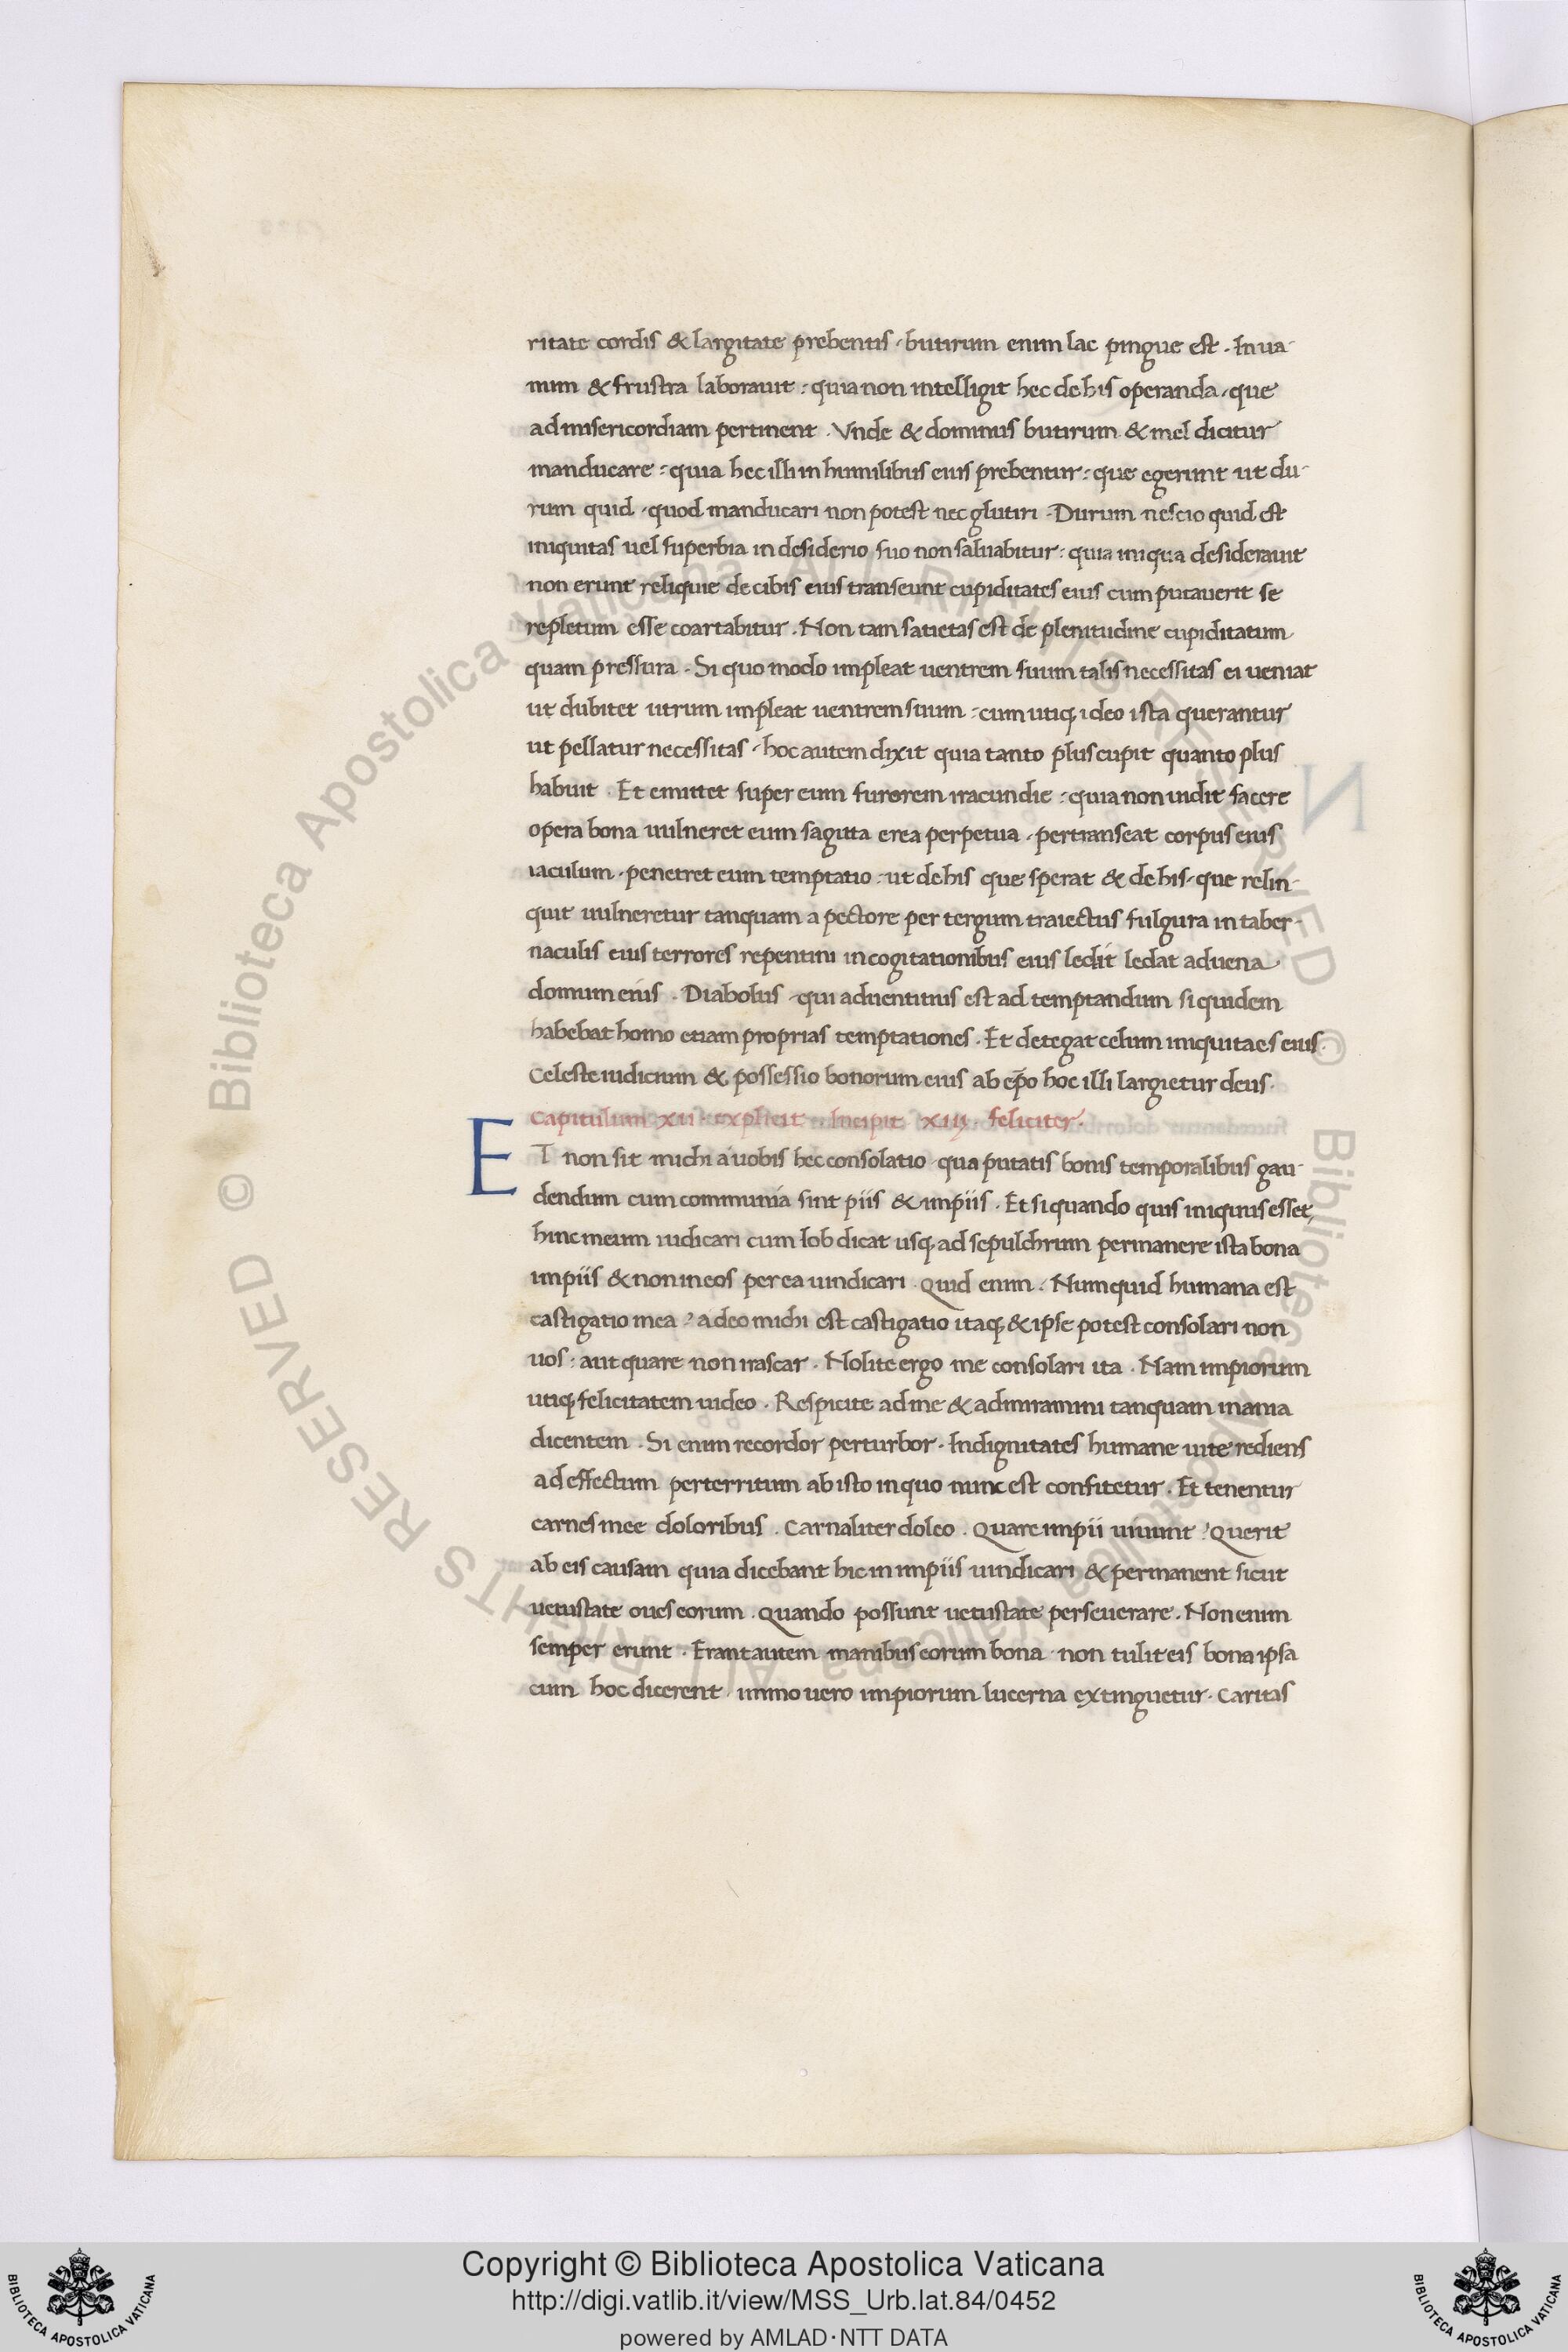 ritate cordis & largitate prebentis · butirum enim lac pingue est . In ua-
num & frustra laborauit : quia non intelligit hec de his operanda · que
ad misericordiam pertinent . Vnde & dominus butirum & mel dicitur
manducare : quia hec illi in humilibus eius prebentur : que egerunt ut du-
rum quid · quod manducari non potest nec glutiri . Durum nescio quid est
iniquitas uel superbia in desiderio suo non saluabitur : quia iniqua desiderauit
non erunt reliquie de cibis eius transeunt cupiditates eius cum putauerit se
repletum esse coartabitur . Non tam satietas est de plenitudine cupiditatum
quam pressura . Si quo modo impleat uentrem suum talis necessitas ei ueniat
ut dubitet utrum impleat uentrem suum : cum utiq; ideo ista querantur
ut pellatur necessitas · hoc autem dixit quia tanto plus cupit quanto plus
habuit . Et emittet super eum furorem iracundie : quia non uidit facere
opera bona uulneret eum sagitta erea perpetua · pertranseat corpus eius
iaculum · penetret eum temptatio : ut de his que sperat & de his · que relin-
quit uulneretur tanquam a pectore per tergum traiectus fulgura in taber-
naculis eius terrores repentini in cogitationibus eius ledit ledat aduena
domum eius . Diabolus · qui aduentitius est ad temptandum si quidem
habebat homo etiam proprias temptationes . Et detegat celum iniquitaes eius .
Celeste iudicium & possessio bonorum eius ab ep̄o hoc illi largietur deus .
Capitulum XII · explicit . Incipit XIII · feliciter .
ET non sit michi a uobis hec consolatio · qua putatis bonis temporalibus gau-
dendum cum communia sint piis & impiis . Et si quando quis iniquus esset,
hinc meum iudicari cum Iob dicat usq; ad sepulchrum permanere ista bona
impiis & non in eos per ea uindicari . Quid enim . Numquid humana est
castigatio mea ? a deo michi est castigatio itaq; & ipse potest consolari non
uos : aut quare non irascar . Nolite ergo me consolari ita . Nam impiorum
utiq; felicitatem uideo . Respicite ad me & admiramini tanquam inania
dicentem . Si enim recordor perturbor . Indignitates humane uite rediens
ad effectum perterritum ab isto in quo nunc est confitetur . Et tenentur
carnes mee doloribus . Carnaliter doleo . Quare impii uiuunt ? Querit
ab eis causam quia dicebant hic in impiis uindicari & permanent sicut
uetustate oues eorum . Quando possunt uetustate perseuerare . Non enim
semper erunt . Erant autem manibus eorum bona · non tulit eis bona ipsa
cum hoc dicerent · immo uero impiorum lucerna extinguetur . Caritas
Copyright © Biblioteca Apostolica Vaticana
http://digi.vatlib.it/view/MSS_Urb.lat.84/0452
powered by AMLAD·NTT DATA